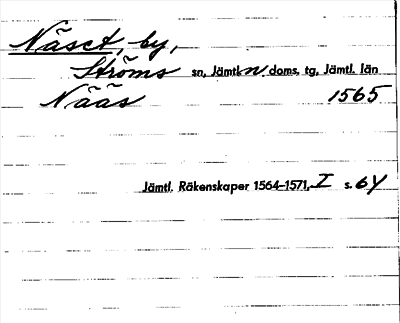 Näset, by,
Ströms sn, Jämtl. n doms. tg, Jämtl. län
Nääs 1565
Jämtl. Räkenskaper 1564-1571, I s. 64